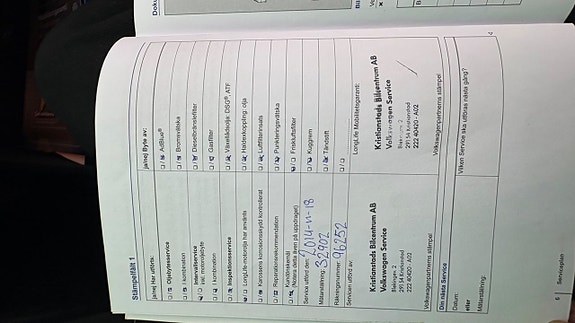 Stämpelfält 1
ja/nej Har utförts:
Oljebyteservice
I kombination
Intervallservice
inkl. motoroljebyte
I kombination
Inspektionsservice
LongLife-motorolja har använts
Karossens korrosionsskydd kontrollerat
Reparationsrekommendation
Kundönskemål
(Notera detta även på uppdraget)
Service utförd den: 2014-11-18
Mätarställning: 32902
Räkningsnummer: 96252
Servicen utförd av:
Kristianstads Bilcentrum AB
Volkswagen Service
Blekingev 2
291 54 Kristianstad
222 40420 - A02
Volkswagenpartnerns stämpel
Din nästa Service
Datum:
eller
Mätarställning:
ja/nej Byte av:
AdBlue®
Bromsvätska
Dieselbränslefilter
Gasfilter
Växellådsolja: DSG®, ATF
Haldexkoppling: olja
Luftfilterinsats
Punkteringsvätska
Friskluftsfilter
Kuggrem
Tändstift
LongLife Mobilitetsgaranti:
Kristianstads Bilcentrum AB
Volkswagen Service
291 54 Kristianstad
222 40420 - A02
Volkswagenpartnerns stämpel
Vilken Service ska utföras nästa gång?
6
Serviceplan